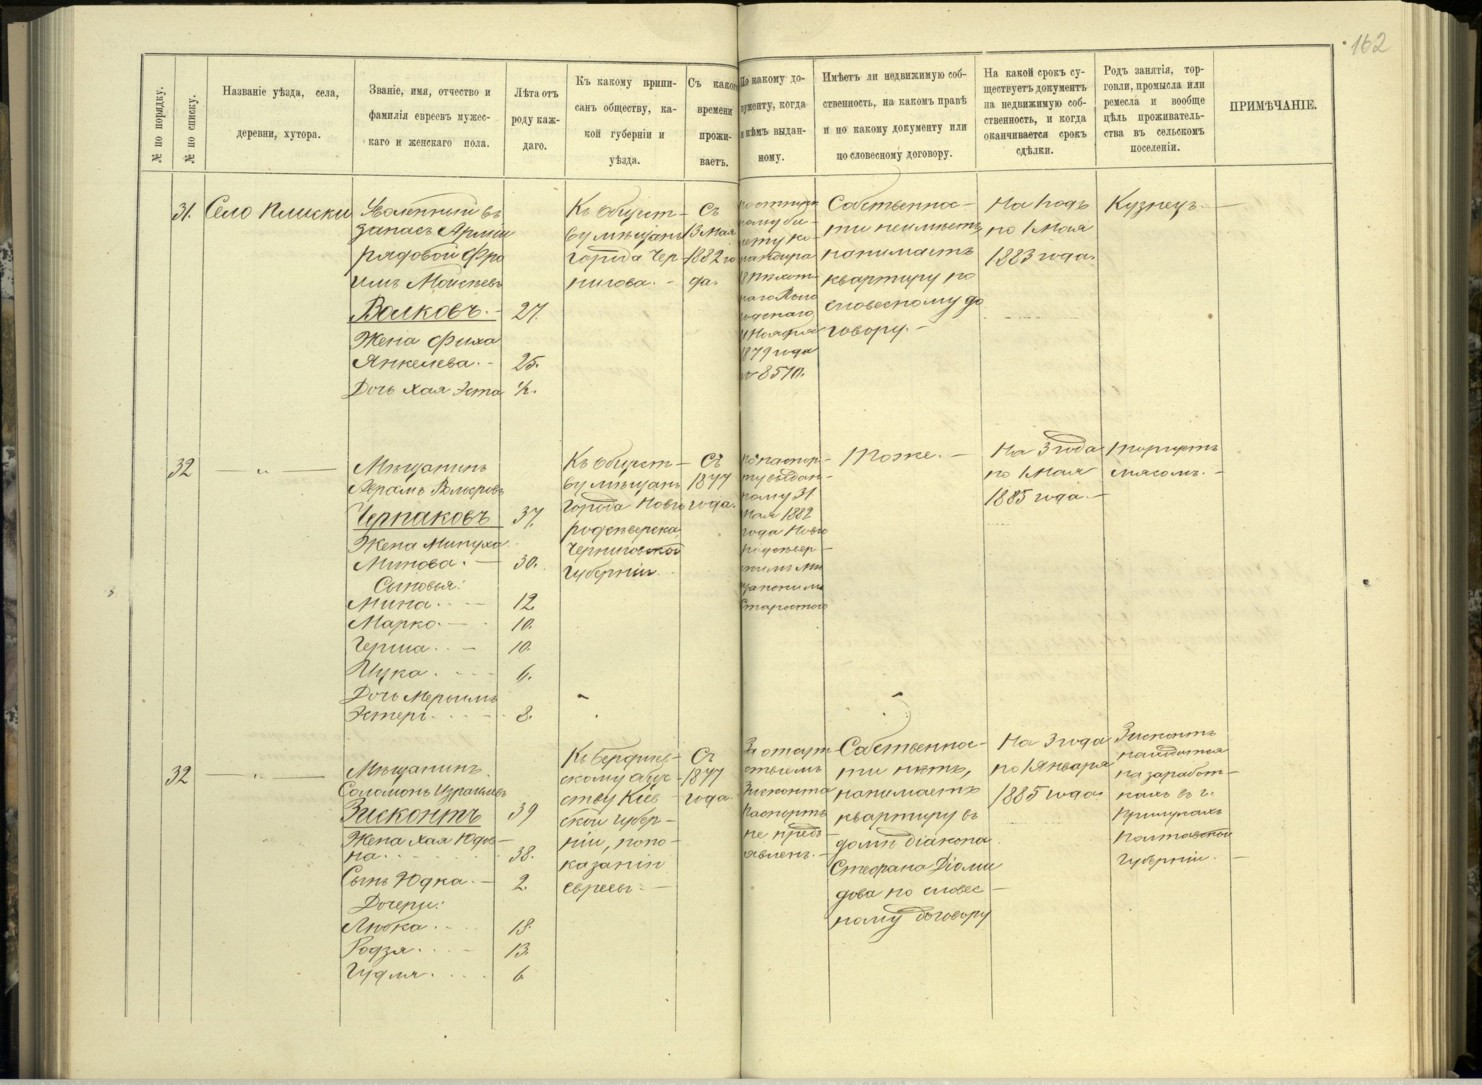 162
№ по порядку.
№ по списку.
Названіе уѣзда, села,
деревни, хутора.
Званіе, имя, отчество и
фамилія евреевъ мужес-
каго и женскаго пола.
Лѣта отъ
роду каж-
даго.
Къ какому припи-
санъ обществу, ка-
кой губерніи и
уѣзда.
Съ какого
времени
прожи-
ваетъ.
По какому до-
кументу, когда
и кѣмъ выдан-
ному.
Имѣетъ ли недвижимую соб-
ственность, на какомъ правѣ
и по какому документу или
по словесному договору.
На какой срокъ су-
ществуетъ документъ
на недвижимую соб-
ственность, и когда
оканчивается срокъ
сдѣлки.
Родъ занятія, тор-
говли, промысла или
ремесла и вообще
цѣль проживатель-
ства въ сельскомъ
поселеніи.
ПРИМѢЧАНІЕ.
31.
Село Плиски
Уволенный въ
запасъ Арміи
рядовой Фро
имъ Моисѣевъ
Волковъ. 27.
Жена Фиха
Янкелева. 25.
Дочь Хая Эста ½.
Къ общест-
ву мѣщанъ
города Чер-
нигова.
Съ
13 Мая
1882 го
да.
ному би-
лету ко-
мандира
11 Ноября
1879 года
№ 8570.
Собственнос-
ти неимѣетъ,
нанимаетъ
квартиру по
словесному до
говору.
На годъ
по 1 Мая
1883 года.
Кузнецъ.
32
— " —
Мѣщанинъ
Черпаковъ 37.
Жена Минуха
Минова. 30.
Сыновья:
Мина 12
Марко 10.
Герша 10.
Ицка 6.
Дочь Мерьимъ
Эстеръ 8.
Къ общест-
ву мѣщанъ
города Новго
родсѣверска
Черниговской
губерніи.
Съ
1877
года.
По паспор-
ту выдан-
ному 31
Мая 1882
года Новго
родсѣвер-
скимъ мѣ
щанскимъ
Старостою
Тоже.
На 3 года
по 1 Мая
1885 года.
Торгуетъ
мясомъ.
32
— " —
Мѣщанинъ
Соломонъ Израилевъ
Зисконтъ 39
Жена Хая Юдов-
на 38.
Сынъ Юдка 2.
Дочери:
Любка 18.
Родзя 13.
Гудля 6.
Къ Бердичев-
скому обще-
ству Кіев-
ской губер-
ніи, по по-
казанію
евреевъ.
Съ
1877
года.
За отсут-
ствіемъ
Зисконта
паспортъ
не предъ-
явленъ.
Собственнос-
ти нѣтъ,
нанимаетъ
квартиру въ
домѣ діакона
Стефана Діоми
дова по словес-
ному договору
На 3 года
по 1 Января
1885 года.
Зисконтъ
находится
на заработ-
кахъ въ г.
Прилукахъ
Полтавской
губерніи.